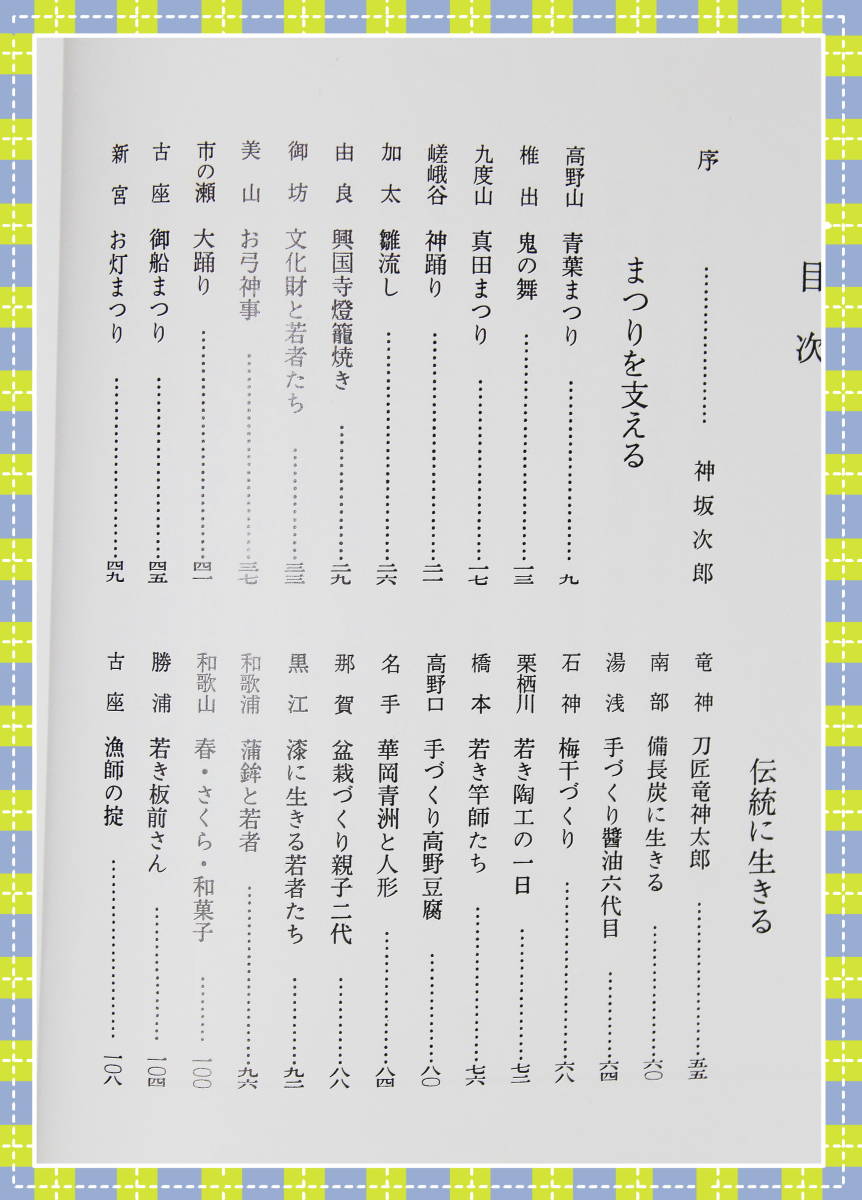 目次
序 …………………… 神坂次郎
まつりを支える
高野山 青葉まつり …………………… 九
椎出 鬼の舞 …………………… 一三
九度山 真田まつり …………………… 一七
嵯峨谷 神踊り …………………… 二一
加太 雛流し …………………… 二六
由良 興国寺燈籠焼き …………………… 二九
御坊 文化財と若者たち …………………… 三三
美山 お弓神事 …………………… 三七
市の瀬 大踊り …………………… 四一
古座 御船まつり …………………… 四五
新宮 お灯まつり …………………… 四九
伝統に生きる
竜神 刀匠竜神太郎 …………………… 五五
南部 備長炭に生きる …………………… 六〇
湯浅 手づくり醬油六代目 …………………… 六四
石神 梅干づくり …………………… 六八
栗栖川 若き陶工の一日 …………………… 七二
橋本 若き竿師たち …………………… 七六
高野口 手づくり高野豆腐 …………………… 八〇
名手 華岡青洲と人形 …………………… 八四
那賀 盆栽づくり親子二代 …………………… 八八
黒江 漆に生きる若者たち …………………… 九二
和歌浦 蒲鉾と若者 …………………… 九六
和歌山 春・さくら・和菓子 …………………… 一〇〇
勝浦 若き板前さん …………………… 一〇四
古座 漁師の掟 …………………… 一〇八